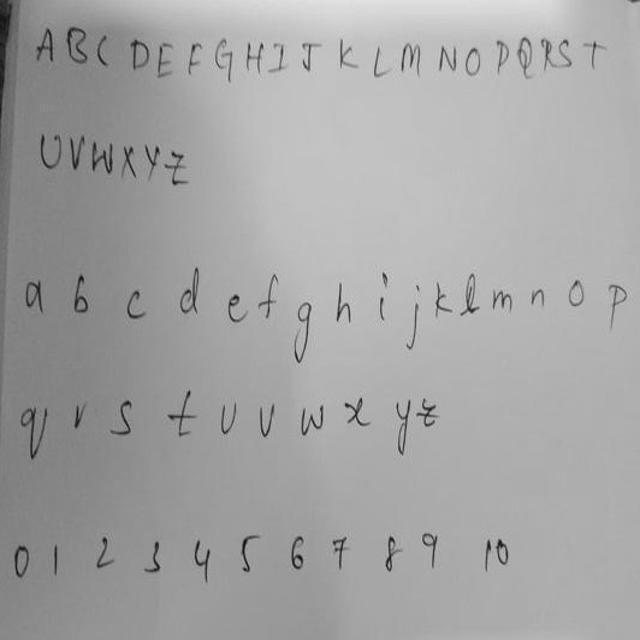 A B C D E F G H I J K L M N O P Q R S T
U V W X Y Z
a b c d e f g h i j k l m n o p
q r s t u v w x y z
0 1 2 3 4 5 6 7 8 9 10